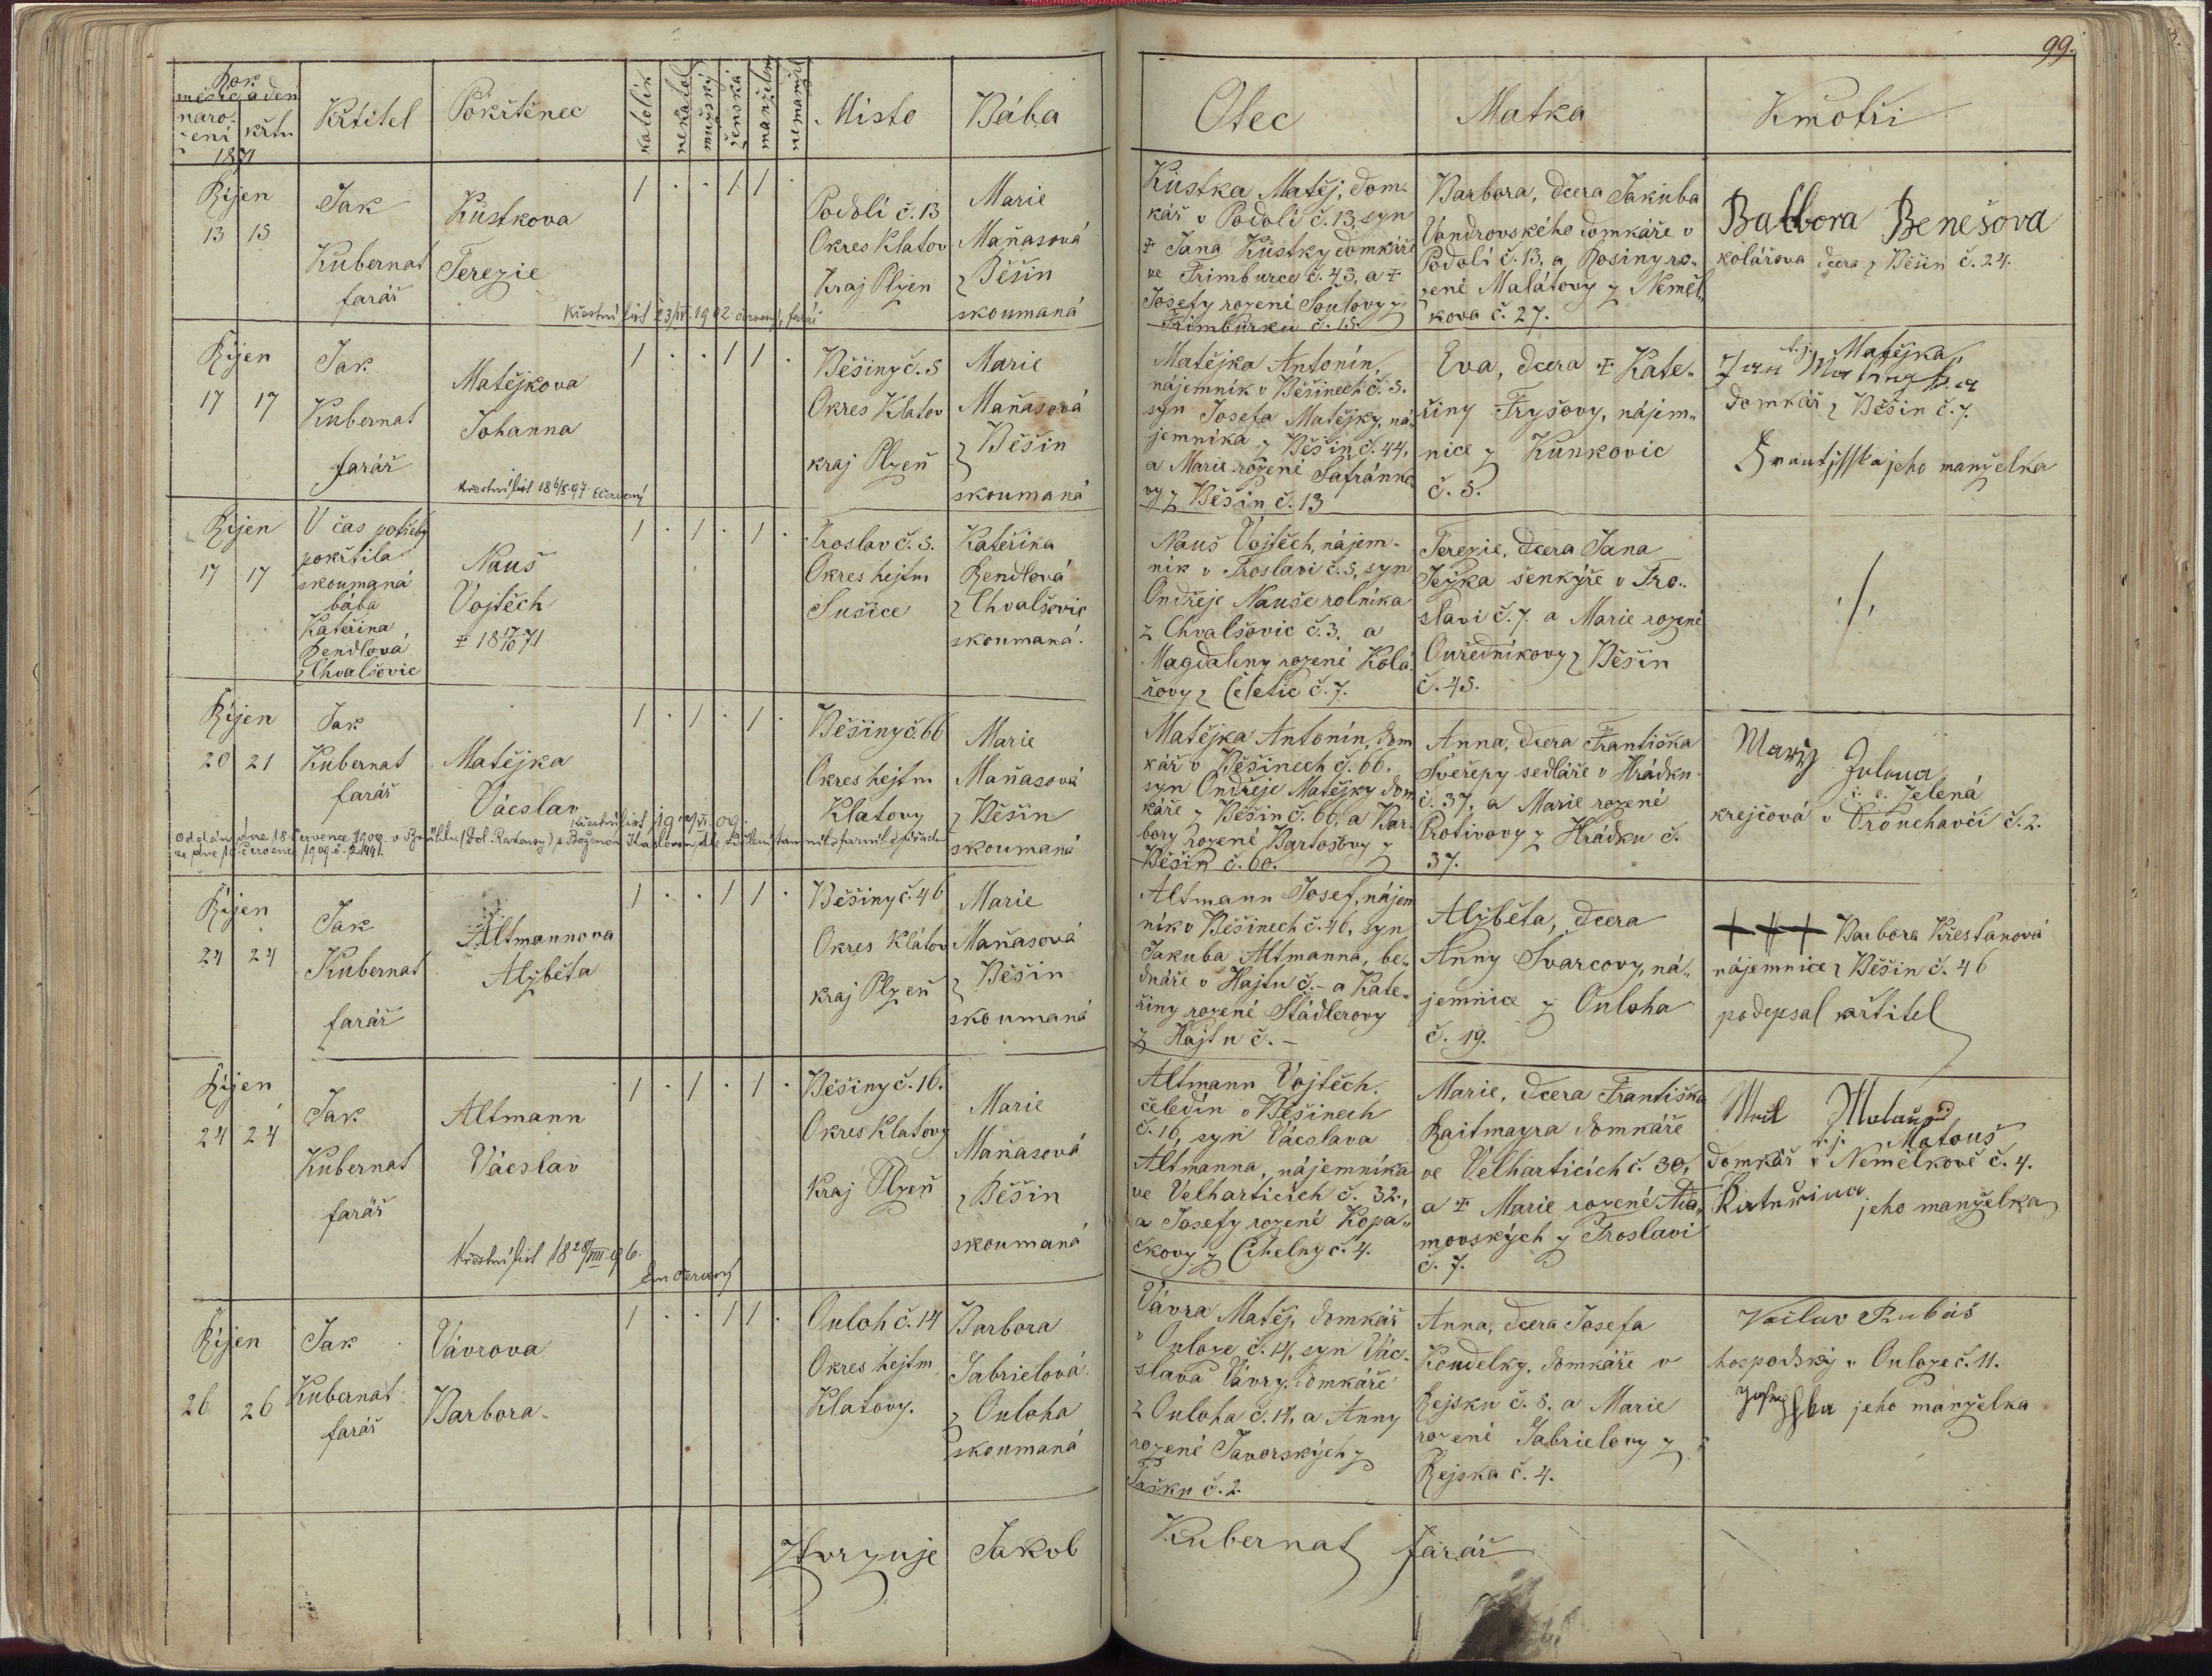 99.
Rok
měsíc a den
naro-
zení
křtu
1871
Křtitel
Pokřtěnec
katolík
nekatol
mužský
ženská
manželský
nemanžel
Místo
Bába
Otec
Matka
Kmotři
Říjen
13 15
Jak
Kubernat
farář
Kůstkova
Terezie
1 . . 1 1 .
Podolí č. 13
Okres Klatov
Kraj Plzen
Marie
Maňasová
z Běšin
skoumaná
Křestní list 23/IV. 1902 červený, farář
Kůstka Matěj, dom-
kář v Podolí č. 13, syn
‡ Jana Kůstky domkáře
ve Frimburce č. 43, a ‡
Josefy rozené Soulovy z
Frimburku č. 15.
Barbora, dcera Jakuba
Vandrovského domkáře v
Podolí č. 13, a Rosiny ro-
zené Malátovy z Neměl-
kova č. 27.
Balbora Benešova
kolářova dcera z Běšin č. 24.
Říjen
17 17
Jak
Kubernat
farář
Matějkova
Johanna
Křestní list 18 6/8 97 Ečervený
1 . . 1 1 .
Běšiny č. 5
Okres Klatov
kraj Plzeň
Marie
Maňasová
z Běšin
skoumaná
Matějka Antonín,
nájemník v Běšinech č. 5.
syn Josefa Matějky, ná-
jemníka z Běšin č. 44,
a Marie rozené Šafránko-
vy z Běšin č. 13
Eva, dcera ‡ Kate-
řiny Fryšovy, nájem-
nice z Kunkovic
č. 5.
t. j. Matějka
Jan
domkář z Běšin č. 7.
jeho manželka
Říjen
17 17
V čas potřeby
pokřtila
skoumaná
bába
Kateřina
Rendlová
z Chvalšovic
Nauš
Vojtěch
‡ 18 17/10 71
1 . 1 . 1 .
Troslav č. 5.
Okres hejtm
Sušice
Kateřina
Rendlová
z Chvalšovic
skoumaná.
Nauš Vojtěch, nájem-
ník v Troslavi č. 5, syn
Ondřeje Nauše rolníka
z Chvalšovic č. 3. a
Magdaleny rozené Kolá-
řovy z Čeletic č. 7.
Terezie, dcera Jana
Ježka šenkýře v Tro-
slavi č. 7. a Marie rozené
Ouředníkovy z Běšin
č. 45.
./.
Říjen
20 21
Jak
Kubernat
farář
Matějka
Vácslav
Křestní list 19 10/VI 09.
Oddán dne 18. července 1909. v
ze dne 18. července 1909. č. 2.1441.
1 . 1 . 1 .
Běšiny č. 66
Okres hejtm
Klatovy
Marie
Maňasová
z Běšin
skoumaná
Matějka Antonín, dom
kář v Běšinech č. 66.
syn Ondřeje Matějky dom
káře z Běšin č. 66, a Bar-
bory rozené Bartošovy z
Běšin č. 60.
Anna, dcera Františka
Sveřepy sedláře v Hrádku
č. 37, a Marie rozené
Protivovy z Hrádku č.
37.
Mariy
t. j. Jelená
krejčová v Drouhavči č. 2.
Říjen
24 24
Jak
Kubernat
farář
Altmannova
Alžběta
1 . . 1 1 .
Běšiny č. 46
Okres Klatov
kraj Plzeň
Marie
Maňasová
z Běšin
skoumaná
Altmann Josef, nájem
ník v Běšinech č. 46, syn
Jakuba Altmanna, be-
dnáře v Hajtu č. – a Kate-
řiny rozené Stádlerovy
z Hajtu č. –
Alžběta, dcera
Anny Švarcovy, ná-
jemnice z Ouloha
č. 19.
+++ Barbora Křesťanová
nájemnice z Běšin č. 46
podepsal křtitel
Říjen
24 24
Jak
Kubernat
farář
Altmann
Vácslav
Křestní list 18 28/VIII 96.
Em Červený
1 . 1 . 1 .
Běšiny č. 16.
Okres Klatovy
Kraj Plzeň
Marie
Maňasová
z Běšin
skoumaná
Altmann Vojtěch.
čeledín v Běšinech
č. 16, syn Vácslava
Altmanna, nájemníka
ve Velharticích č. 32.,
a Josefy rozené Kopá-
čkovy z Cihelny č. 4.
Marie, dcera Františka
Raitmayra domkáře
ve Velharticích č. 30,
a ‡ Marie rozené Ada-
movských z Troslavi
č. 7.
t. j. Matouš
domkář v Němělkově č. 4.
Kateřina jeho manželka
Říjen
26 26
Jak
Kubernat
farář
Vávrova
Barbora
1 . . 1 1 .
Ouloh č. 14
Okres hejtm
Klatovy.
Barbora
Jabrielová
z Ouloha
skoumaná
Vávra Matěj, domkář
v Ouloze č. 14, syn Vác-
slava Vávry, domkáře
z Ouloha č. 14, a Anny
rozené Javorských z
Tašku č. 2.
Anna, dcera Josefa
Koudelky, domkáře v
Rejsku č. 8. a Marie
rozené Jabrielovy z
Rejska č. 4.
Václav Rubáš
hospodský v Ouloze č. 11.
jeho manželka
Ztvrzuje Jakob
Kubernat farář